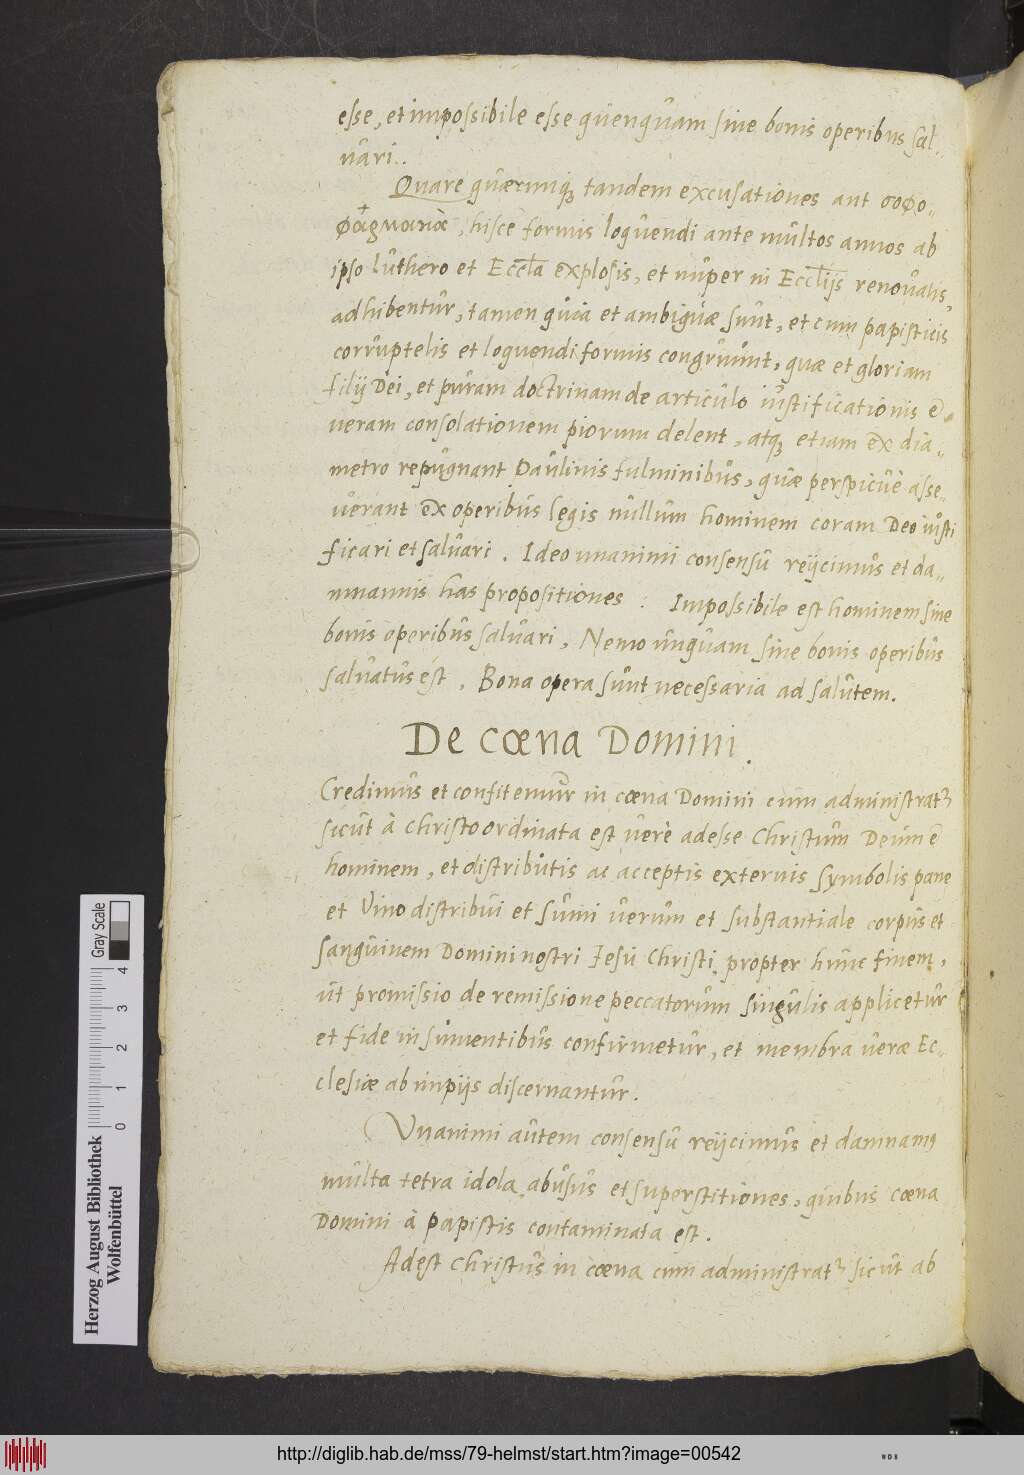 esse, et impossibile esse quenquam sine bonis operibus sal..
vari..
Quare quæcunqꝫ tandem excusationes aut σοφο..
φάρμακα, hisce formis loquendi ante multos annos ab
ipso Luthero et Eccl̄a explosis, et nuper in Eccl̄ijs renovatis,
adhibentur, tamen quia et ambiguæ sunt, et cum papisticis
corruptelis et loquendi formis congruunt, quæ et gloriam
filij Dei, et puram doctrinam de articulo iustificationis ē
veram consolationem piorum delent, atqꝫ etiam ex dia..
metro repugnant Paulinis fulminibus, quæ perspicuè asse..
verant ex operibus legis nullum hominem coram Deo iusti
ficari et salvari. Ideo unanimi consensu reijcimus et da..
mnamus has propositiones : Impossibile est hominem sine
bonis operibus salvari, Nemo unquam sine bonis operibus
salvatus est. Bona opera sunt necessaria ad salutem.
De cœna Domini.
Credimus et confitemur in cœna Domini cum administratꝛ
sicut à Christo ordinata est verè adesse Christum Deum ē
hominem, et distributis ac acceptis externis symbolis pane
et Vino distribui et sumi verum et substantiale corpus et
sanguinem Domini nostri Jesu Christi propter hunc finem,
ut promissio de remissione peccatorum singulis applicetur
et fide in sumentibus confirmetur, et membra veræ Ec..
clesiæ ab impijs discernantur.
Vnanimi autem consensu reijcimus et damnamꝰ
multa tetra idola, abusus et superstitiones, quibus cœna
Domini à papistis contaminata est.
Adest Christus in cœna cum administratꝛ sicut ab
Gray Scale
0 1 2 3 4
Herzog August Bibliothek
Wolfenbüttel
http://diglib.hab.de/mss/79-helmst/start.htm?image=00542
WDB